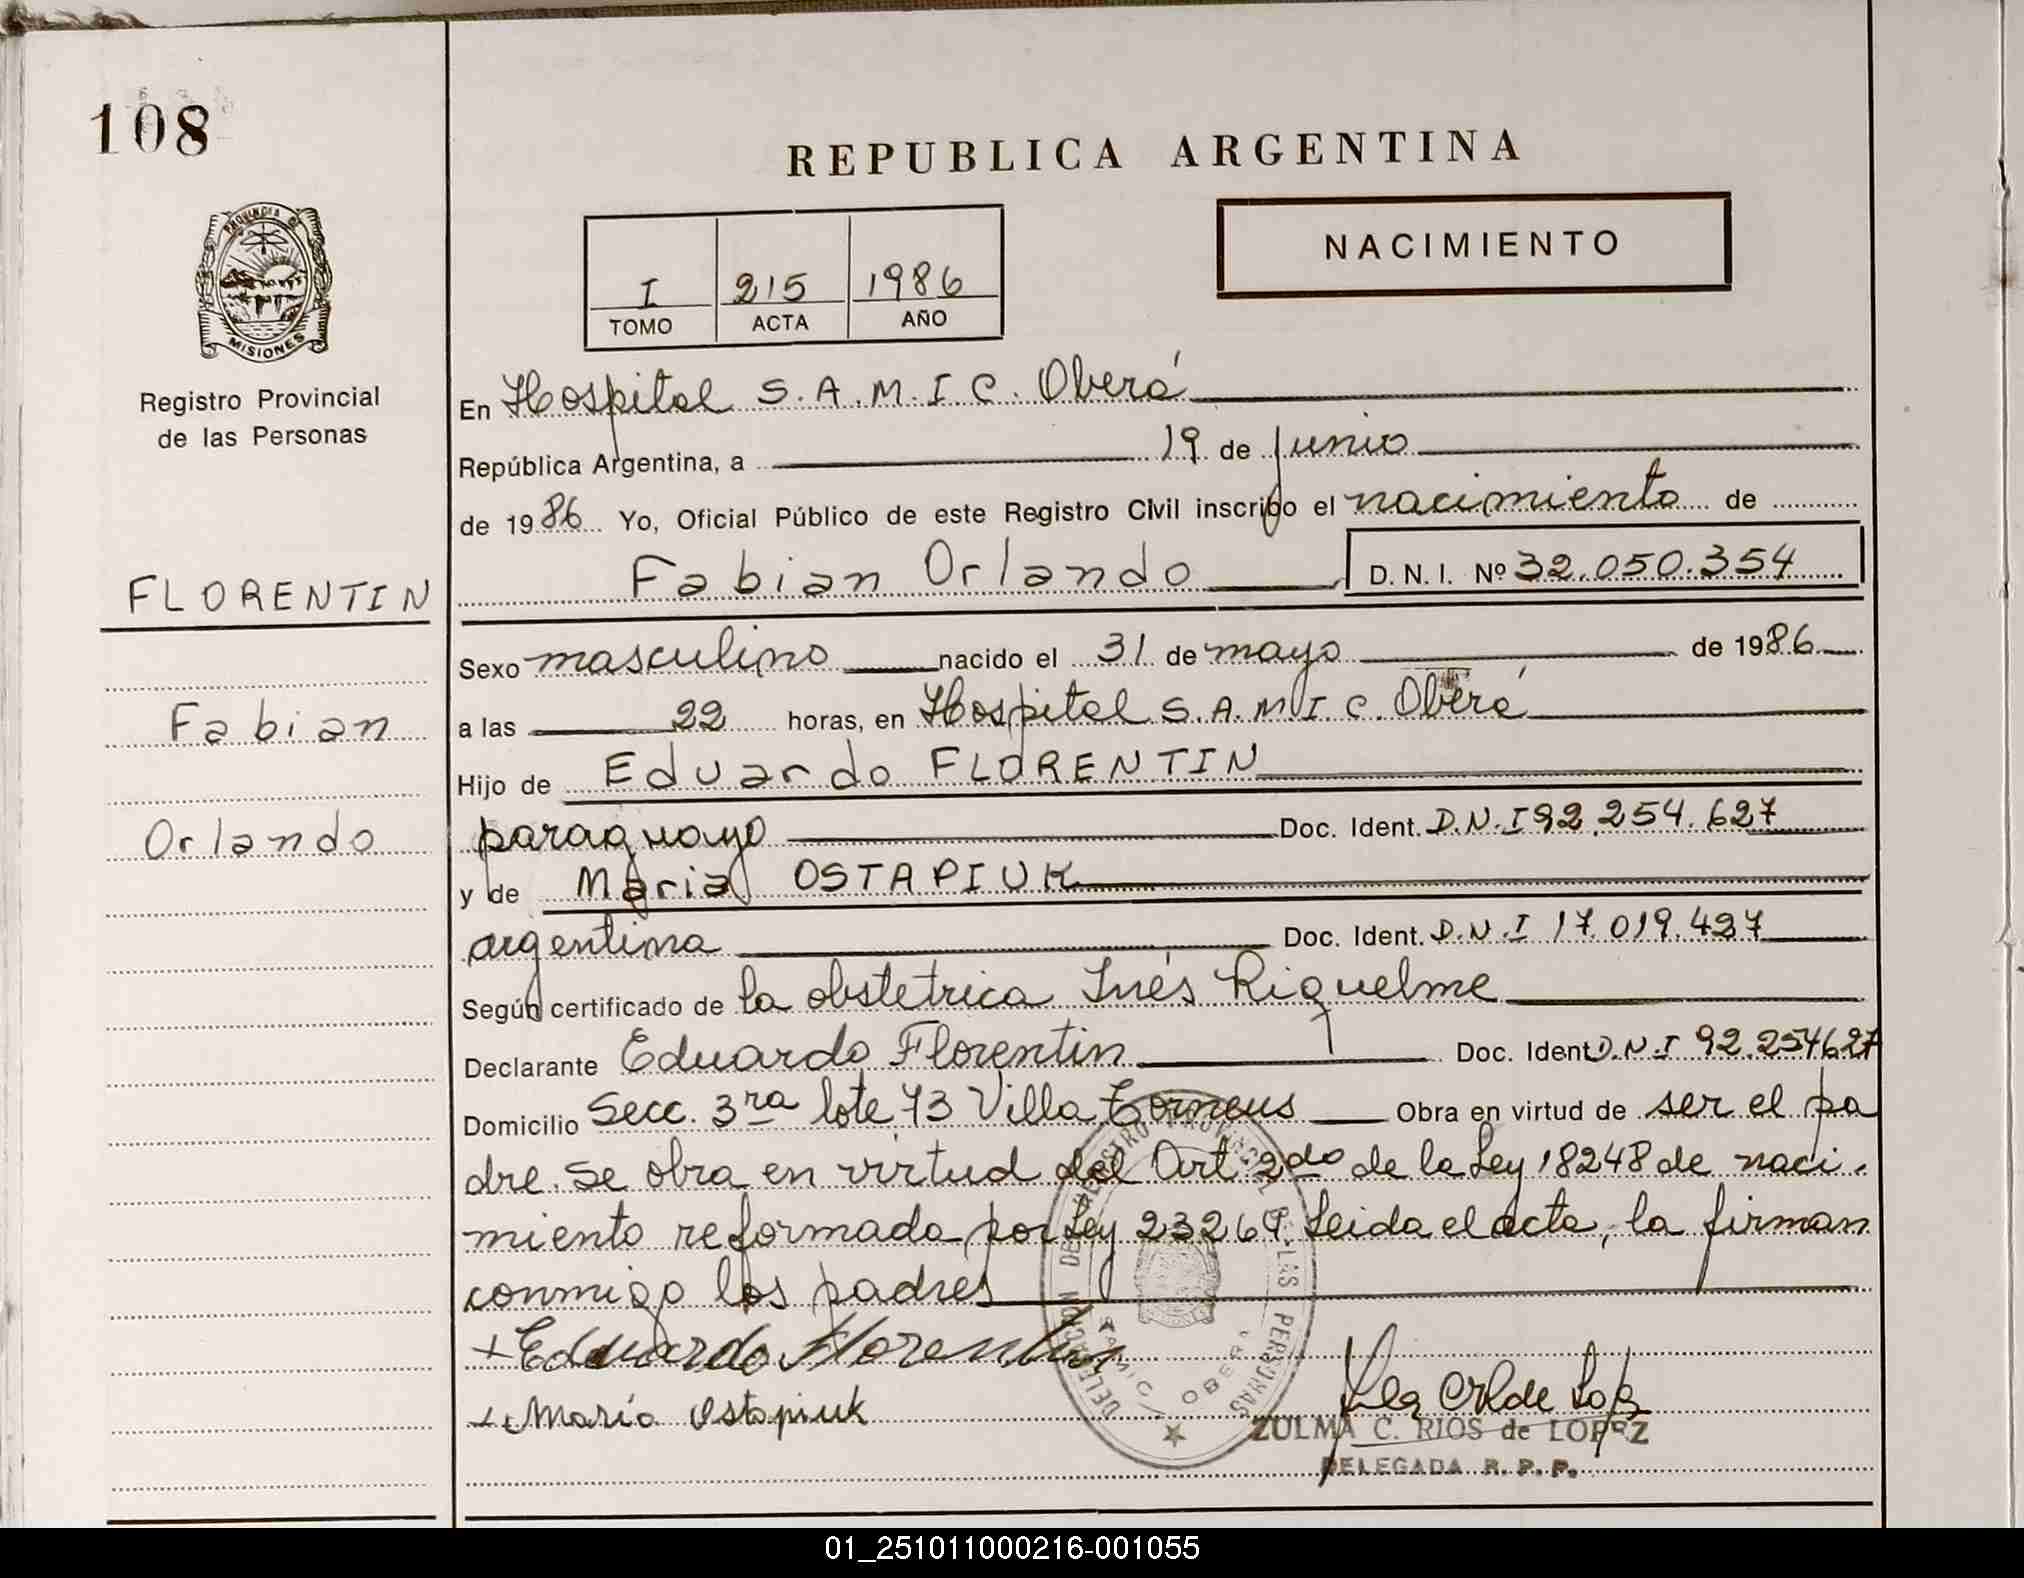 108
REPUBLICA ARGENTINA
NACIMIENTO
I 215 1986
TOMO ACTA AÑO
PROVINCIA DE
MISIONES
Registro Provincial
de las Personas
FLORENTIN
Fabian
Orlando
En Hospital S.A.M.I.C. Oberá
República Argentina, a 19 de junio
de 1986 Yo, Oficial Público de este Registro Civil inscribo el nacimiento de
Fabian Orlando D.N.I. Nº 32.050.354
Sexo masculino nacido el 31 de mayo de 1986
a las 22 horas, en Hospital S.A.M.I.C. Oberá
Hijo de Eduardo FLORENTIN
paraguayo Doc. Ident. D.N.I 92.254.627
y de Maria OSTAPIUK
argentina Doc. Ident. D.N.I 17.019.427
Según certificado de la obstetrica Inés Riquelme
Declarante Eduardo Florentin Doc. Ident D.N.I 92.254627
Domicilio Secc. 3ra lote 73 Villa Obra en virtud de ser el pa
dre. Se obra en virtud del Art. 2do de la Ley 18248 de naci-
miento reformada por Ley 23264 Leida el acta, la firman
conmigo los padres
+ Eduardo Florentin
+ Maria Ostapiuk
DELEGACION DEL REGISTRO PROVINCIAL DE LAS PERSONAS
SAMIC OBERA
ZULMA C. RIOS de LOPEZ
DELEGADA R.P.P.
01_251011000216-001055